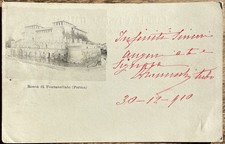 Rocca di Fontanellato (Parma)
Infiniti sinceri
auguri a te e
Famiglia
30-12-910